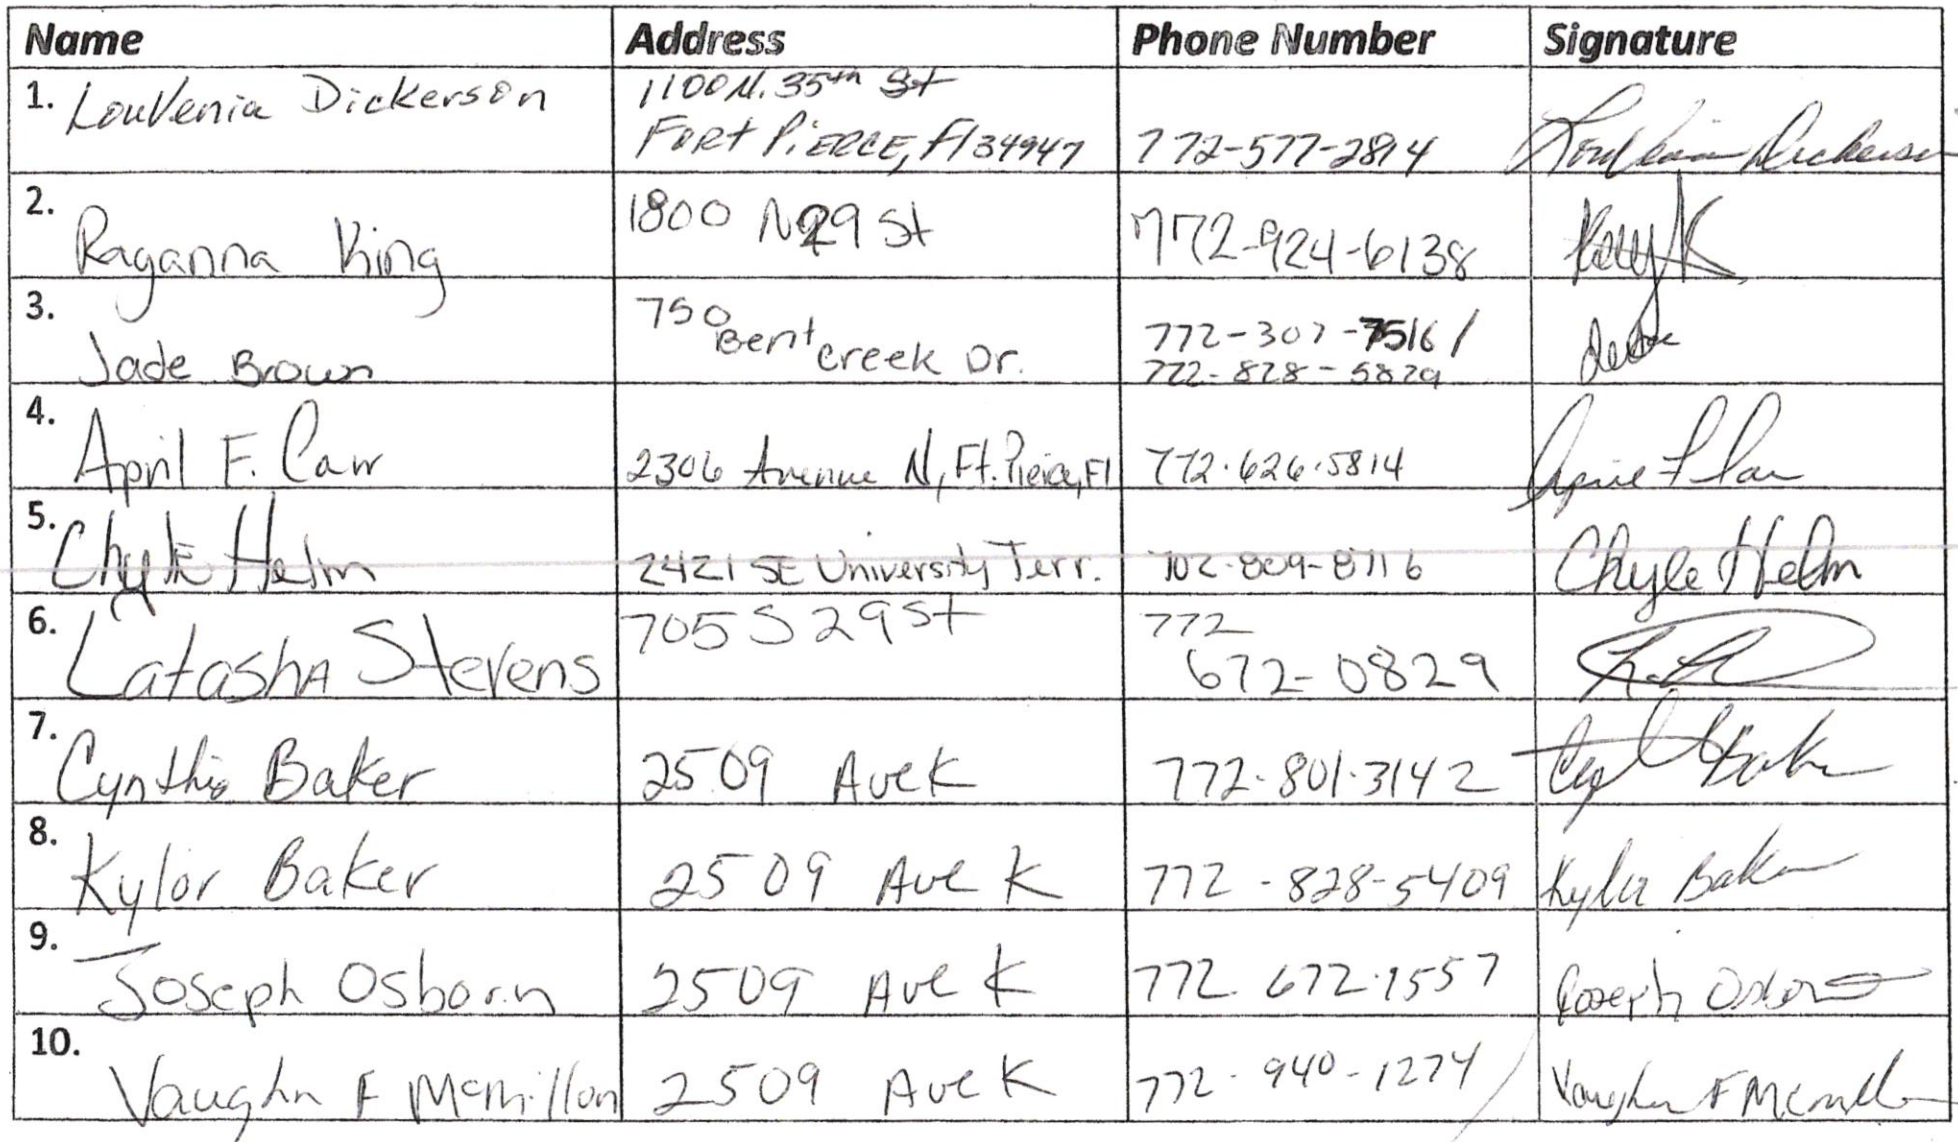 Name Address Phone Number Signature
1. LouVenia Dickerson 1100 N. 35th St
Fort Pierce, Fl 34947 772-577-2814 Louvenia Dickerson
2. Raganna King 1800 N 29 St 772-924-6138 Ray K
3. Jade Brown 750 Bent creek Dr. 772-307-7516 /
772-828-5829
4. April F. Carr 2306 Avenue N, Ft. Pierce, Fl 772.626.5814 April F Carr
5. Chyle Helm 2421 SE University Terr. 702-809-8716 Chyle Helm
6. Latasha Stevens 705 S 29 St 772
672-0829
7. Cynthia Baker 2509 Ave K 772-801-3142 Baker
8. Kylor Baker 2509 Ave K 772-828-5409 Kylor Baker
9. Joseph Osborn 2509 Ave K 772 672-1557 Joseph Osborn
10. Vaughn F McMillon 2509 Ave K 772-940-1274 Vaughn F McMillon